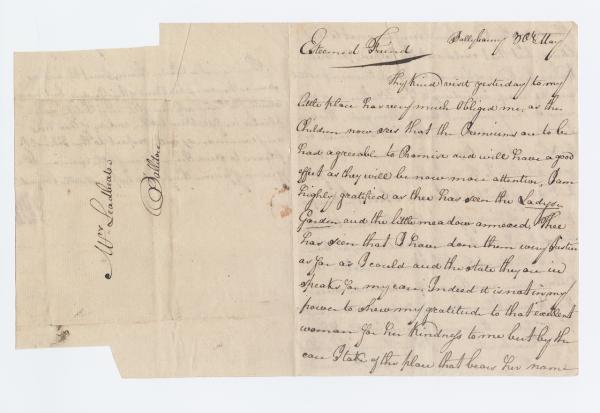 Esteemed Friend
Ballybarny 30th May
Thy kind visit yesterday to my
little place has very much Obliged me, as the
Children now sees that the Premiums are to be
had agreeable to Promise and will have a good
effect as they will be now more attentive, I am
highly gratified as thee has seen the Ladys
Garden and the little meadow annexed, Thee
has seen that I have don them every Justice
as far as I could and the state they are in
speaks for my care, Indeed it is not in my
power to shew my gratitude to that excelent
woman for her kindness to me but by the
care I take of the place that bears her name
Mrs Leadbeater
Ballitore